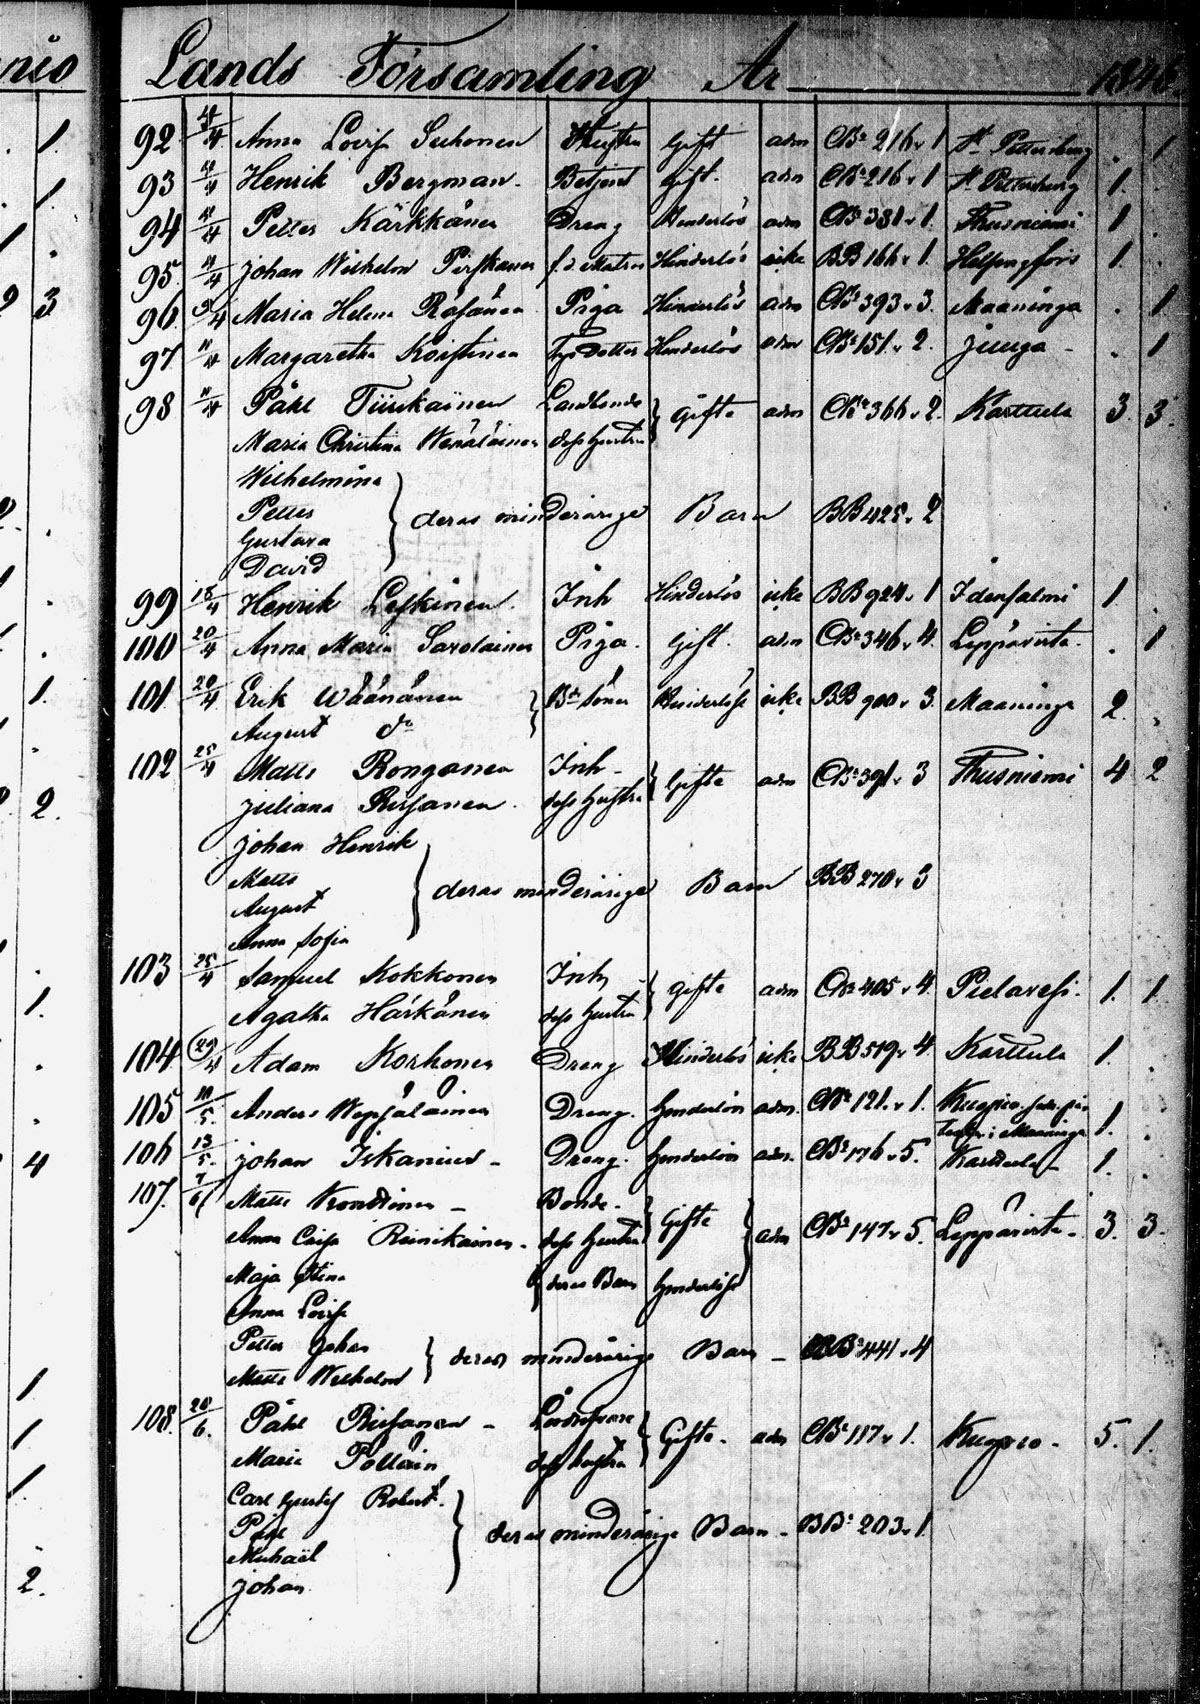 nio
Lands Församling År 1846.
92 4/4 Anna Lovisa Suhonen Hustru Gift adm CB: 216 v 1 St Pettersburg . 1
93 4/4 Henrik Bergman. Betjent gift. adm CB: 216 v 1 St Pettersburg 1.
94 4/4 Petter Kärkkäinen Dreng Hinderlös adm CB: 381 v 1. Thusniemi 1
95 4/4 Johan Wilhelm Pirskanen f.d. Matros Hinderlös icke BB 166 v 1. Helsingfors 1.
96 Maria Helena Räsänen Piga Hinderlös adm CB: 393 v 3. Maaninga . 1
97 Margaretha Koistinen Dotter Hinderlös adm CB: 151 v 2. Juuga - . 1
98 Påhl Tiirikainen Landbonde } gifte adm CB: 366 v 2. Karttula 3. 3.
Maria Christina Wenäläinen dess hustru
Wilhelmina
Petter } deras minderårige Barn BB 425 v 2
Gustava
David
99 18/4 Henrik Leskinen. Inh Hinderlös icke BB 924 v 1 Idensalmi 1.
100 20/4 Anna Maria Savolainen Piga. gift. adm CB: 346 v 4. Leppävirta. . 1
101 20/4 Erik Wäänänen } Bd: Söner Hinderlöse icke BB 900 v 3. Maaninga 2.
August do
102 25/4 Matts Ronganen Inh - } Gifte adm CB: 391 v 3 Thusniemi 4 2
Juliana Rissanen. dess hustru
Johan Henrik
Matts } deras minderårige Barn BB 270 v 3
August
Anna Sofia
103 25/4 Samuel Kokkonen Inh } gifte adm CB: 405 v 4. Pielavesi. 1. 1
Agatha Härkänen dess hustru
104 29/4 Adam Korhonen Dreng Hinderlös icke BB 519 v 4 Karttula 1.
105 10/5. Anders Weps��läinen Dreng. Hinderlös adm. CB: 121. v 1. Kuopio 1.
i Maaninga
106 13/5. Johan Iskanius - Dreng. Hinderlös adm. CB: 176 v 5. Karttula - 1.
107. 7/6 Matts - Bonde. } Gifte } adm CB: 147 v 5. Leppävirta - 3. 3.
Anna Caisa Reinikainen - dess hustru
Maja Stina } deras Barn hinderlöse
Anna Lovisa
Petter Johan } deras minderårige Barn - BB: 441 v 4
Matts Wilhelm
108. 20/6. Påhl Rissanen - } Gifte. adm CB: 117 v 1. Kuopio - 5. 1.
Maria Pollain dess hustru
Carl Gustaf Robert.
Påhl } deras minderårige Barn - BB: 203 v 1.
Michaël
Johan